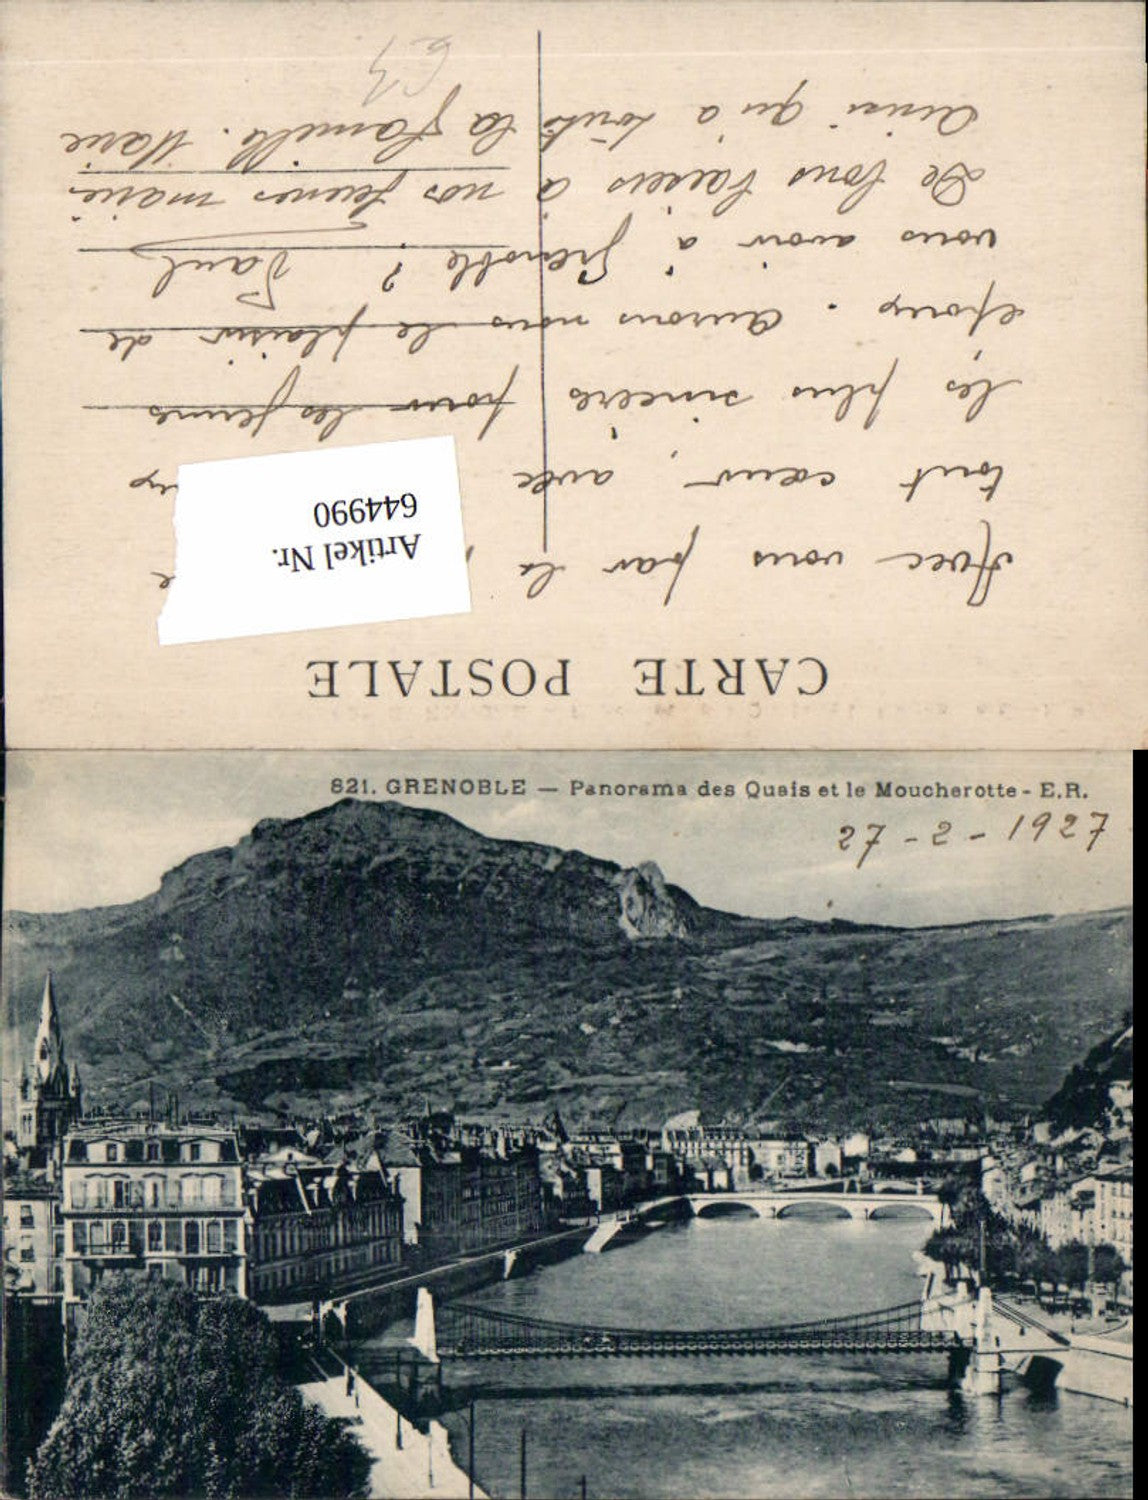 CARTE POSTALE
Avec vous par la
tout cœur, avec
les plus sincères pour les jeunes
époux. Aurons nous le plaisir de
vous avoir à Grenoble ? Paul
De bons baisers à nos jeunes mariés
Ainsi qu'à toute la famille. Marie
Artikel Nr.
644990
821. GRENOBLE — Panorama des Quais et le Moucherotte - E.R.
27-2-1927